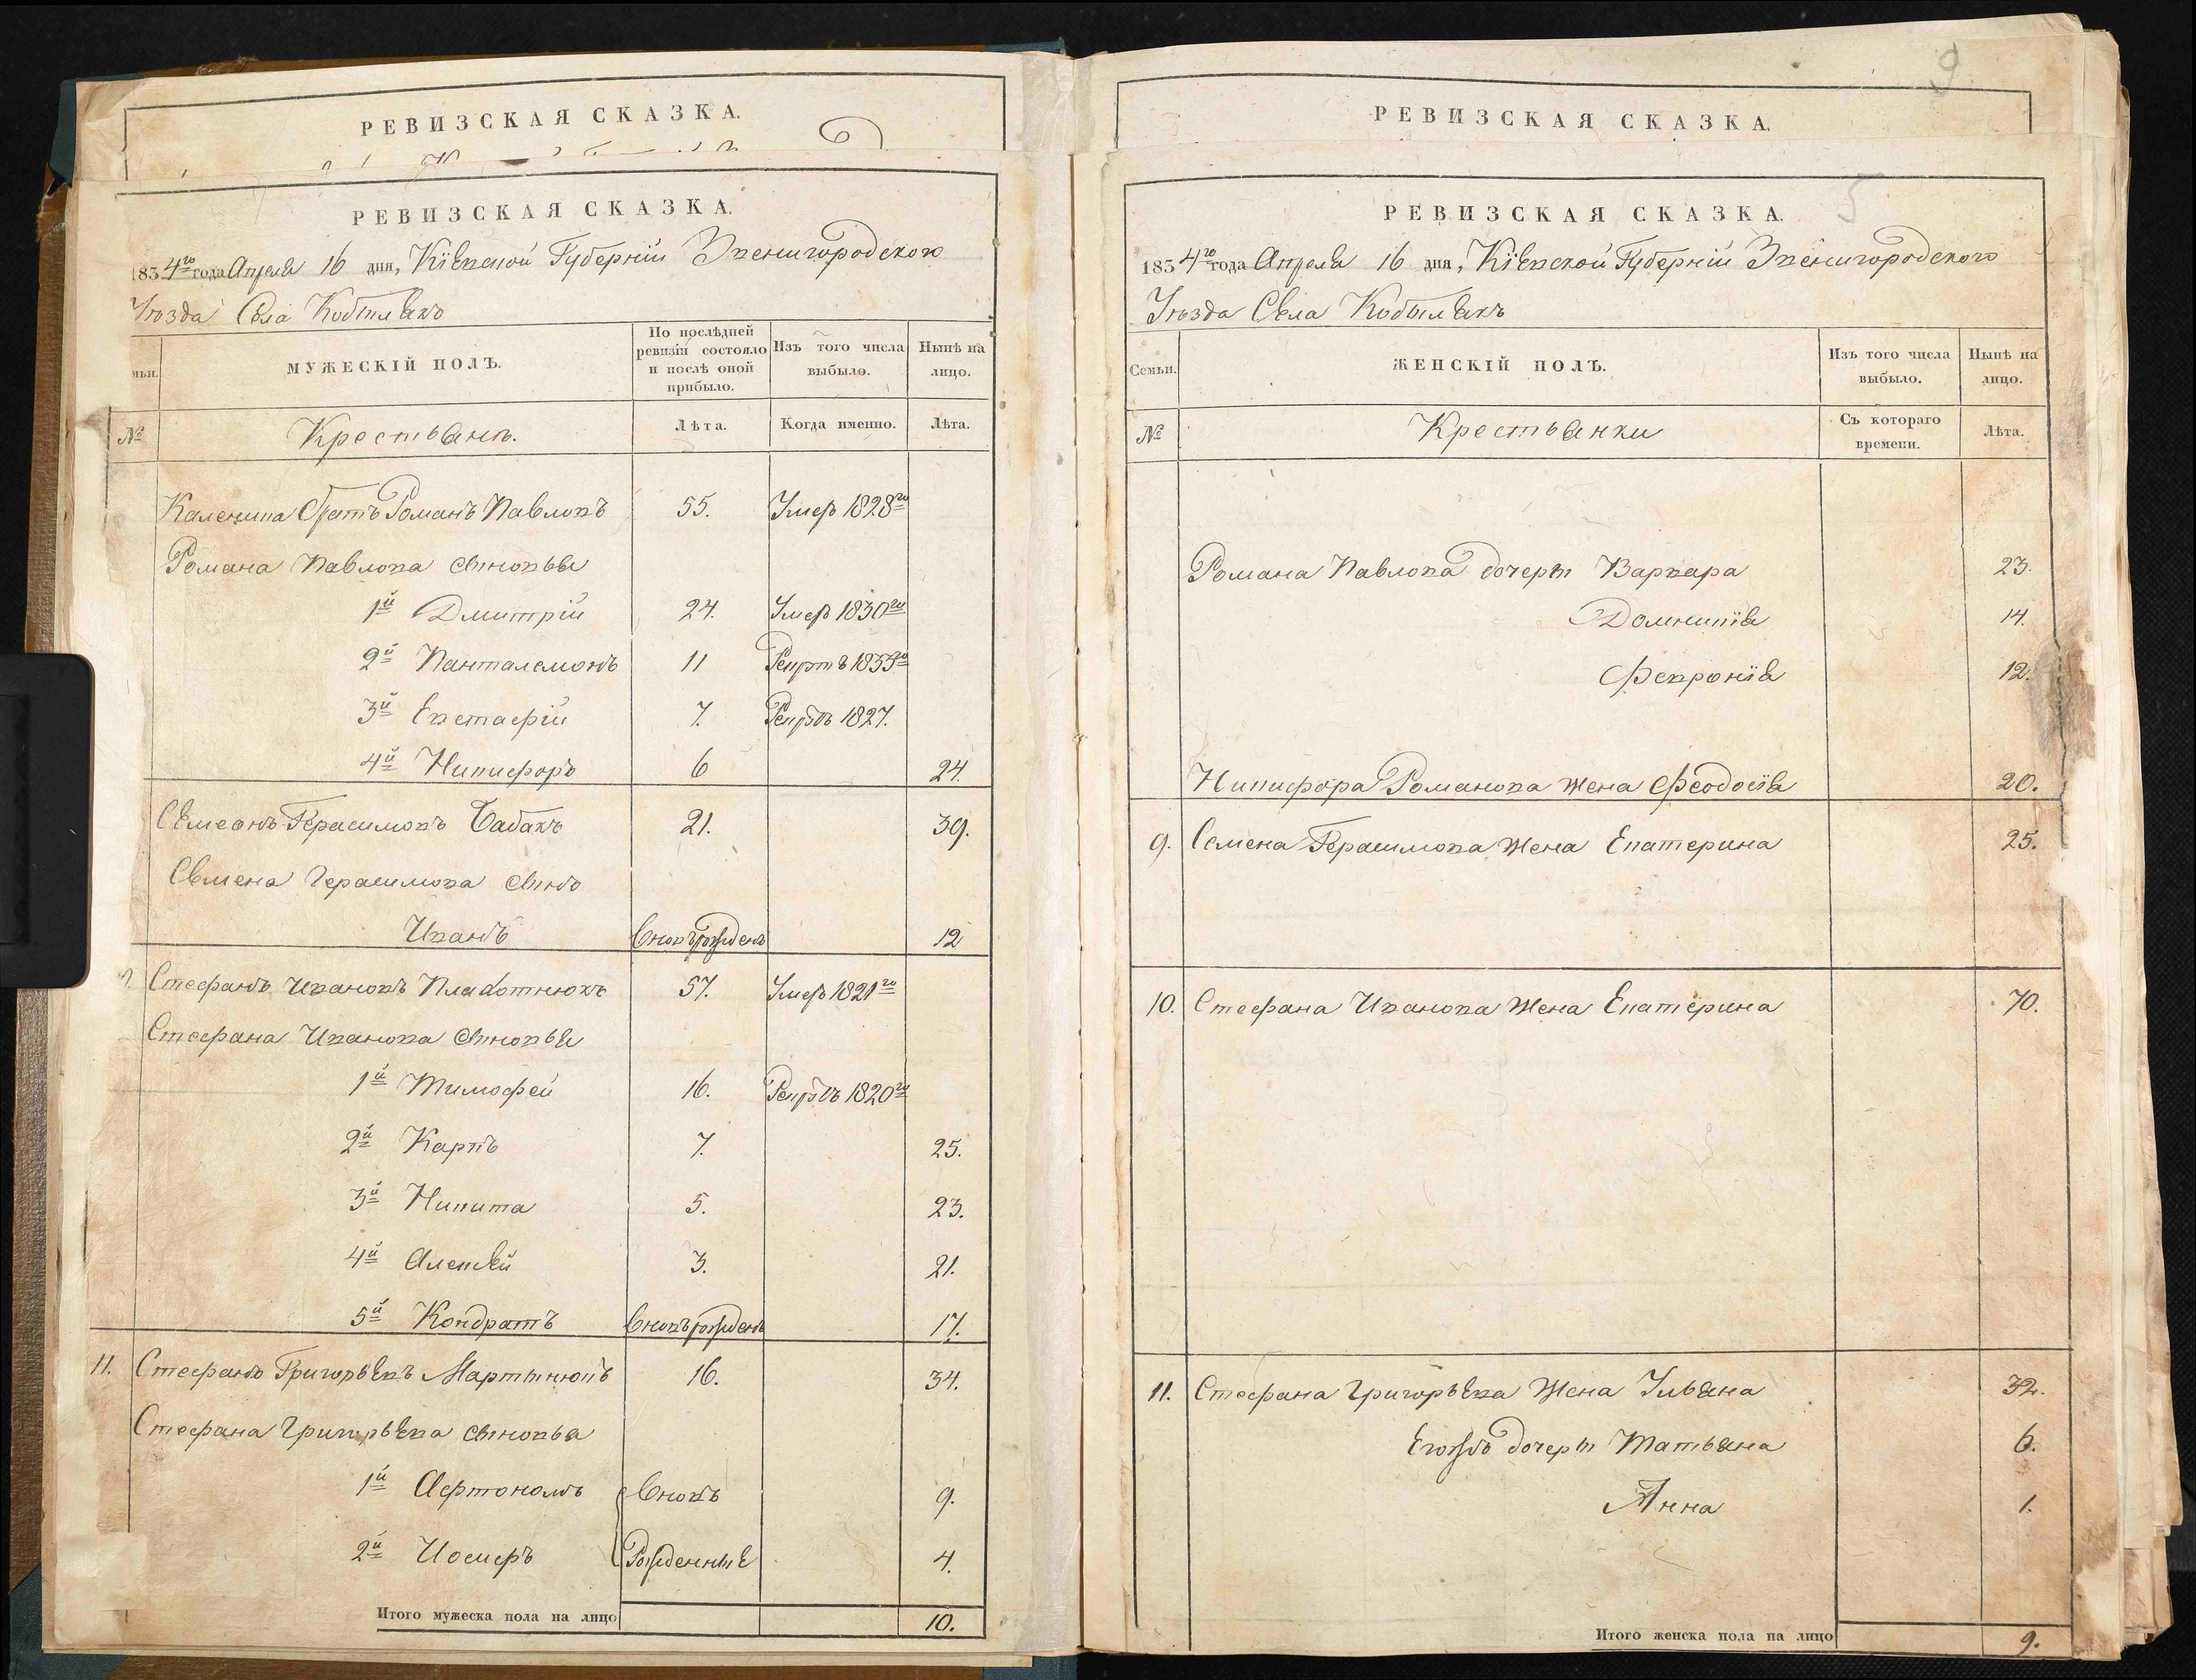 РЕВИЗСКАЯ СКАЗКА.
РЕВИЗСКАЯ СКАЗКА.
1834го года Апреля 16 дня, Кіевской Губерніи Звенигородского
Уѣзда Села Кобыляк
мьи. МУЖЕСКІЙ ПОЛЪ. По послѣдней ревизіи состояло и послѣ оной прибыло. Изъ того числа выбыло. Нынѣ на лицо.
№ Крестьяне. Лѣта. Когда именно. Лѣта.
братъ Романъ Павловъ 55. Умеръ 1828го
Романа Павлова сыновья
1й Дмитрій 24. Умеръ 1830го
2й Панталемонъ 11
3й Евстафій 7. 1827.
4й Никифоръ 6 24.
Семеонъ Герасимовъ Бабакъ 21. 39.
Семена Герасимова сынъ
Иванъ Вновьрожденъ 12
Стефанъ Ивановъ Плахотнюкъ 57. Умеръ 1821го
Стефана Иванова сыновья
1й Тимофей 16. 1820го
2й Карпъ 7. 25.
3й Никита 5. 23.
4й Алексѣй 3. 21.
5й Кондратъ Вновьрожденъ 17.
11. Стефанъ Григорьевъ Мартынюкъ 16. 34.
Стефана Григорьева сыновья
1й Афтономъ Вновь 9.
2й Иосифъ Рожденные 4.
Итого мужеска пола на лицо 10.
9
РЕВИЗСКАЯ СКАЗКА.
5
РЕВИЗСКАЯ СКАЗКА.
1834го года Апреля 16 дня, Кіевской Губерніи Звенигородского
Уѣзда Села Кобылякъ
Семьи. ЖЕНСКІЙ ПОЛЪ. Изъ того числа выбыло. Нынѣ на лицо.
№ Крестьянки Съ котораго времени. Лѣта.
Романа Павлова дочери Варвара 23.
Домникія 14.
Февронія 12.
Никифора Романова жена Феодосія 20.
9. Семена Герасимова жена Екатерина 25.
10. Стефана Иванова жена Екатерина 70.
11. Стефана Григорьева жена Ульяна 32.
Егожъ дочери Татьяна 6.
Анна 1.
Итого женска пола на лицо 9.